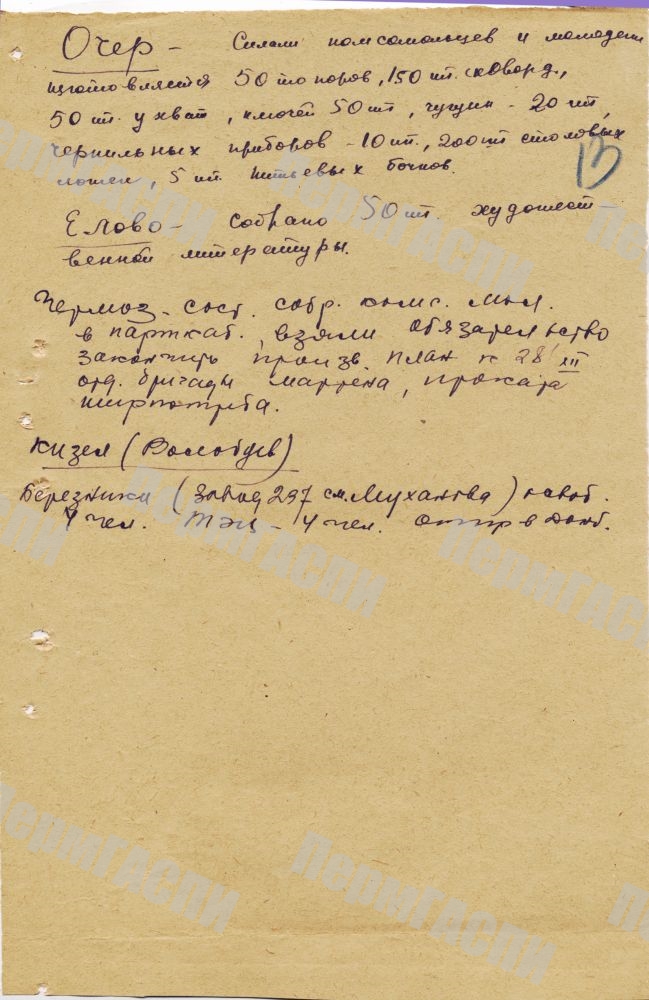 Очер - Силами комсомольцев и молодежи
изготовляется 50 топоров, 150 шт. сковород,
50 шт. ухват, ключей 50 шт, чугун - 20 шт,
чернильных приборов - 10 шт., 200 шт столовых
ложек, 5 шт. питьевых бочков.
13
Елово - собрано 50 шт. художест-
венной литературы.
Чермоз - сост. собр. комс. мол.
в парткаб., взяли обязательство
закончить произв. план к 28/XII
отд. бригады мартена, проката
ширпотреба.
Кизел (Волобуев)
Березники (завод 297 см. Муханова)
4 чел. ТЭЦ - 4 чел. отпр в Донб.
ПермГАСПИ
ПермГАСПИ
ПермГАСПИ
ПермГАСПИ
ПермГАСПИ
ПермГАСПИ